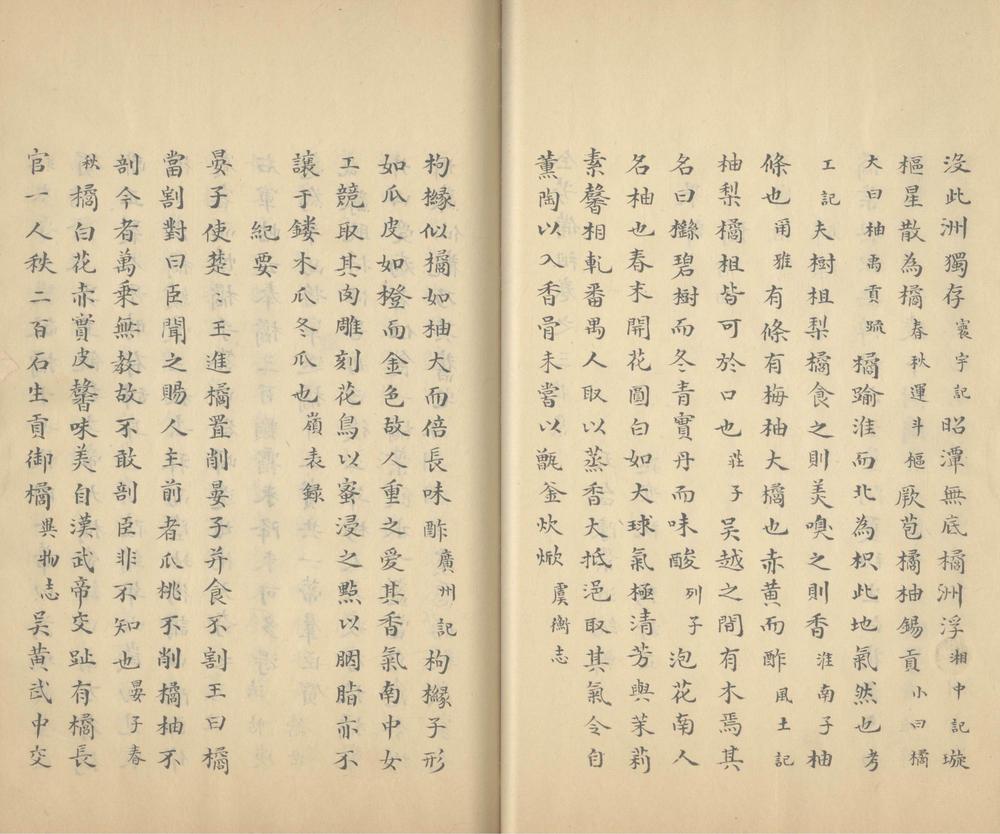 没此洲獨存寰宇記昭潭無底橘洲浮湘中記璇
樞星散為橘春秋運斗樞厥苞橘柚錫貢小曰橘
大曰柚禹貢䟽橘踰淮而北為枳此地氣然也考
工記夫樹柤梨橘食之則美嗅之則香淮南子柚
條也甭雅有條有梅柚大橘也赤黃而酢風土記
柚梨橘柤皆可於口也莊子吴越之間有木焉其
名曰櫾碧樹而冬青實丹而味酸列子泡花南人
名柚也春末開花圓白如大球氣極清芳與茉莉
素馨相軋番禺人取以蒸香大抵浥取其氣令自
薰陶以入香骨未嘗以甑釜炊焮虞衡志
枸櫞似橘如柚大而倍長味酢廣州記枸櫞子形
如瓜皮如如橙而金色故人重之愛其香氣南中女
工競取其肉雕刻花鳥以蜜浸之㸃以胭脂亦不
讓于鏤木瓜冬瓜也嶺表錄
紀要
晏子使楚〻王進橘置削晏子并食不割王曰橘
當割對曰臣聞之賜人主前者瓜桃不削橘柚不
剖今者萬乘無教故不敢剖臣非不知也晏子春
秋橘白花赤實皮馨味美自漢武帝交趾有橘長
官一人秩二百石生貢御橘異物志吴黃武中交